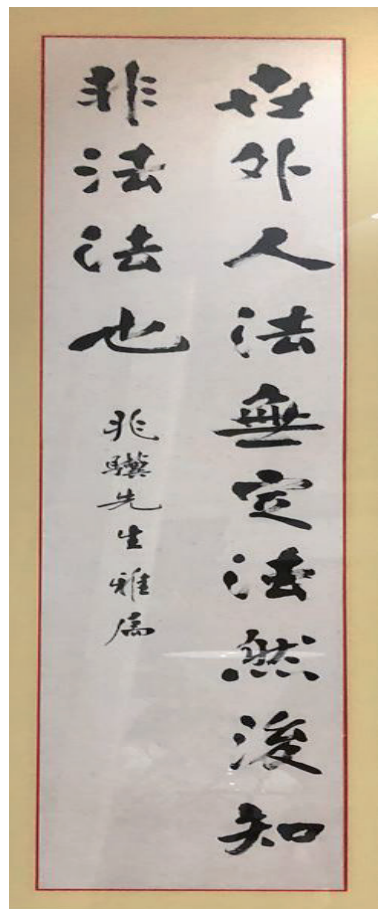 世外人法無定法然後知
非法法也
兆驥先生雅属